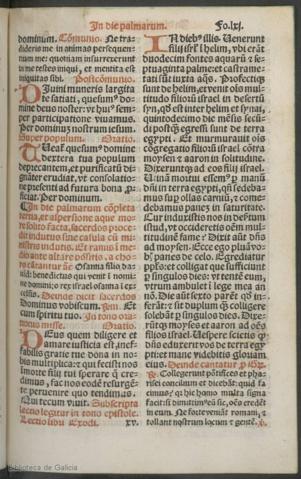 In die palmarum. Fo.lxi.
dominum. Cõmunio. Ne tra-
dideris me in animas persequen-
tium me: quoniam insurrexerunt
in me testes iniqui, et mentita est
iniquitas sibi. Postcõmunio.
Diuini muneris largita-
te satiati, quesumus dñe
deus noster: vt huius semp
per participatione viuamus.
Per dominũ nostrum iesum.
Super populum. Oratio.
Tueatur quesumus domine
dextera tua populum
deprecantem, et purificatũ di-
gnãter erudiat, vt consolatio-
ne presenti ad futura bona p-
ficiat. Per dominum.
In die palmarum cõpleta
tertia, et aspersione aque mo-
re solito facta, sacerdos proce-
dit indutus sine casula cũ mi-
nistris indutis.
ante altare positis, a cho-
ro cãtantur sic. Osanna filio da-
uid: benedictus qui venit ĩ nomi-
ne domini: o rex israel osanna ĩ ex-
celsis. Deinde dicit sacerdos
Dominus vobiscum. Rñ. Et
cum spiritu tuo. In tono ora-
tionis misse. Oratio.
Deus quem diligere et
amare iusticia est, inef-
fabilis gratie tue dona in no-
bis multiplica: et qui fecisti nos
ĩ morte filij tui sperare q̃ cre-
dimus, fac nos eodẽ resurgẽ-
te peruenire quo tendimus.
Qui tecum viuit. Subscripta
lectio legitur in tono epistole.
Lectio libri Exodi. xv.
In dieb⁹ illis. Uenerunt
filij isrl̃ ĩ helim, vbi erãt
duodecim fontes aquarũ et se-
ptuaginta palme: et castrame-
tati sũt iuxta aq̃s. Profectiqʒ
sunt de helim, et venit oĩs mul-
titudo filiorũ israel in desertũ
syn, qđ est inter helim et synai,
quintodecimo die mẽsis secũ-
di postq̃ egressi sunt de terra
egypti. Et murmurauit oĩs
cõgregatio filiorũ israel cõtra
moysen et aaron in solitudine.
Dixeruntqʒ ad eos filij israel.
Utinã mortui essem⁹ p manũ
dñi in terra egypti, qñ sedeba-
mus sup ollas carniũ, et come-
debamus panez in saturitate.
Cur induxistis nos in desertũ
istud, vt occideretis oẽm mul-
titudinẽ fame? Dixit aũt dñs
ad moysen. Ecce ego pluã vo-
bʒ panes de celo. Egrediatur
ppl̃s: et colligat que sufficiunt
p singulos dies: vt tentẽ eum,
vtrum ambulet ĩ lege mea an
nõ. Die aũt sexto parẽt qđ in-
ferãt: et sit duplum q̃ colligere
solebãt p singulos dies. Dixe-
rũtqʒ moyses et aaron ad oẽs
filios israel. Uespere scietis q̃
dñs eduxerit vos de terra egy-
pti: et mane videbitis gloriam
eius. Deinde cantatur
Collegerunt põtifices et pha-
risei concilium et dicebãt: quid fa-
cimus? qʒ hic homo multa signa
facit: si dimittim⁹ eũ sic, oẽs credẽt
in eum. Ne forte veniãt romani, et
tollant nostrum locum et gentẽ.
Biblioteca de Galicia